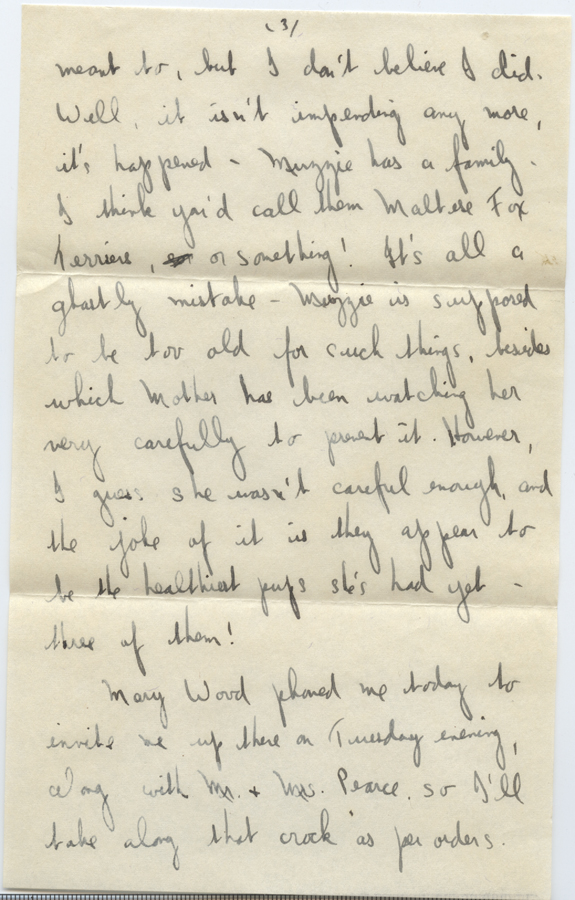 (3)
meant to, but I don't believe I did.
Well, it isn't impending any more,
it's happened - Muzzie has a family -
I think you'd call them Maltese Fox
Terriers, or something! It's all a
ghastly mistake - Muzzie is supposed
to be too old for such things, besides
which Mother has been watching her
very carefully to prevent it. However,
I guess she wasn't careful enough, and
the joke of it is they appear to
be the healthiest pups she's had yet -
three of them!
Mary Wood phoned me today to
invite me up there on Tuesday evening,
along with Mr. & Mrs. Pearce, so I'll
take along that crock as per orders.